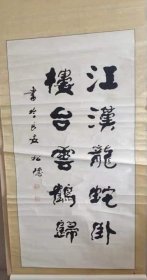 江漢龍蛇卧
樓台雲鶴歸